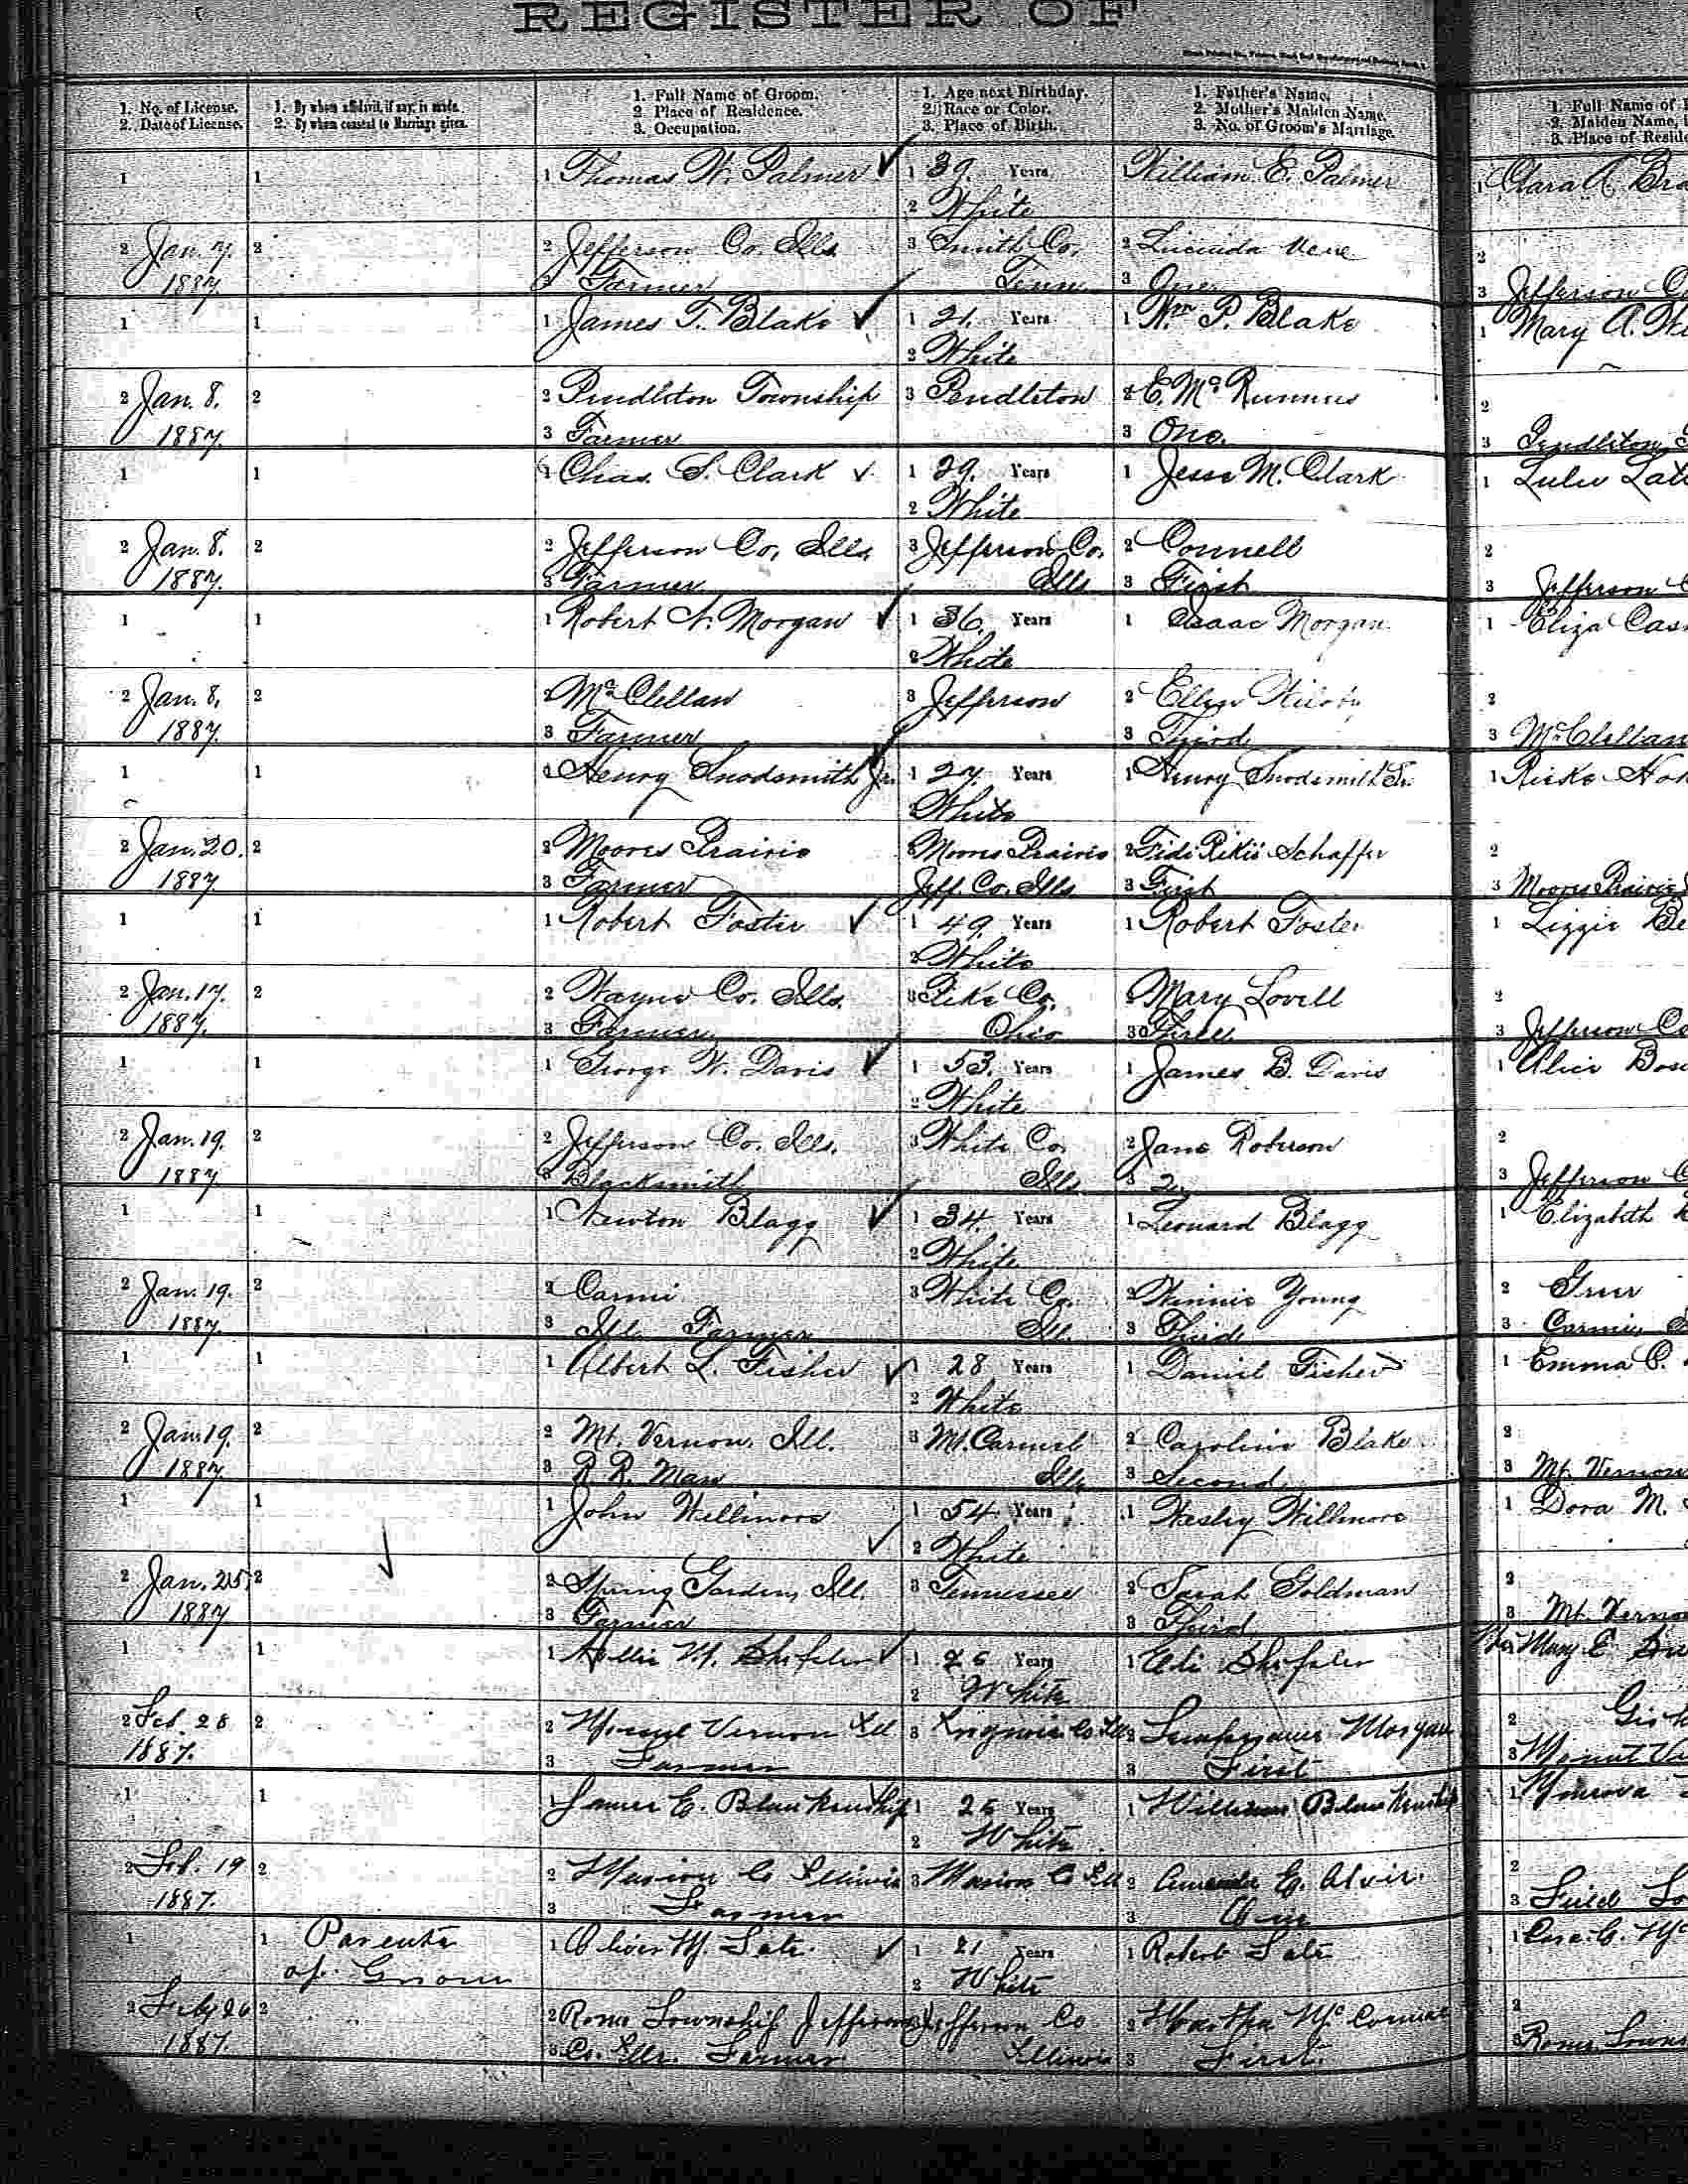 REGISTER OF
1. No. of License.
2. Date of License.
1. By whom affidavit, if any, is made.
2. By whom consent to Marriage given.
1. Full Name of Groom.
2. Place of Residence.
3. Occupation.
1. Age next Birthday.
2. Race or Color.
3. Place of Birth.
1. Father's Name.
2. Mother's Maiden Name.
3. No. of Groom's Marriage.
1. Full Name of
2. Maiden Name,
3. Place of Reside
1 1 1 Thomas W. Palmer ✓ 1 39. Years William E. Palmer 1 Clara A. Bra
2 White
2 Jan. 7. 2 2 Jefferson Co. Ills 3 Smith Co. 2 Lucinda 2
1887. 3 Farmer Tenn 3 One 3 Jefferson Co
1 1 1 James T. Blake ✓ 1 21. Years 1 Wm P. Blake 1 Mary A.
2 White
2 Jan. 8. 2 2 Pendleton Township 3 Pendleton 2 E. Mc 2
1887. 3 Farmer 3 One. 3 Pendleton
1 1 1 Chas. S. Clark ✓ 1 29. Years 1 Jesse M. Clark 1 Lulu
2 White
2 Jan. 8. 2 2 Jefferson Co, Ills. 3 Jefferson Co. 2 Connell 2
1887. 3 Farmer Ills 3 First 3 Jefferson
1 1 1 Robert N. Morgan ✓ 1 36. Years 1 Isaac Morgan 1 Eliza Cas
2 White
2 Jan. 8. 2 2 McClellan 3 Jefferson 2 Ellen 2
1887. 3 Farmer 3 Third 3 McClellan
1 1 1 Henry Snodsmith Jr. ✓ 1 27 Years 1 Henry Snodsmith Sr. 1 Ricke
2 White
2 Jan. 20. 2 2 Moores Prairie 3 Moores Prairie 2 Schaffer 2
1887. 3 Farmer Jeff. Co. Ills 3 First 3 Moores Prairie
1 1 1 Robert Foster ✓ 1 49. Years 1 Robert Foster 1 Lizzie Be
2 White
2 Jan. 17. 2 2 Wayne Co. Ills. 3 Pike Co. 2 Mary Lovell 2
1887. 3 Farmer Ohio 3 Three 3 Jefferson Co
1 1 1 George W. Davis ✓ 1 53. Years 1 James B. Davis 1 Alice Bos
2 White
2 Jan. 19. 2 2 Jefferson Co. Ills. 3 White Co. 2 Jane Roberson 2
1887 3 Blacksmith Ills 3 2 3 Jefferson C
1 1 1 Newton Blagg ✓ 1 34. Years 1 Leonard Blagg 1 Elizabeth
2 White
2 Jan. 19. 2 2 Carmi 3 White Co. 2 Winnie Young 2 Greer
1887. 3 Ill. Farmer Ill. 3 Third 3 Carmi,
1 1 1 Albert L. Fisher ✓ 1 28 Years 1 Daniel Fisher 1 Emma C.
2 White
2 Jan. 19. 2 2 Mt. Vernon, Ill. 3 Mt. Carmel 2 Caroline Blake 2
1887 3 R. R. Man Ill. 3 Second 3 Mt. Vernon
1 1 1 John Wellmore 1 54 Years 1 Wesley Willmore 1 Dora M.
✓ ✓ 2 White
2 Jan. 25, 2 2 Spring Garden, Ill. 3 Tennessee 2 Sarah Goldman 2
1887 3 Farmer 3 Third 3 Mt. Verno
1 1 1 ✓ 1 26 Years 1 Mary E.
2 White
2 Feb. 28 2 2 Mount Vernon Ill 3 Co Ill 2 Morgan 2
1887. 3 Farmer 3 First 3 Mount Ve
1 1 1 James E. Blankenship ✓ 1 25 Years 1 William Blankenship 1
2 White
2 Feb. 19 2 2 Marion Co Illinois 3 Marion Co Ill 2 Amanda E. 2
1887. 3 Farmer 3 One 3 Field
1 1 Parents 1 Oliver M. Tate ✓ 1 21 Years 1 Robert Tate 1
of Groom 2 White
2 Feby 26 2 2 Rome Township Jefferson 3 Jefferson Co 2 Martha 2
1887. 3 Co. Ills. Farmer Illinois 3 First. 3 Rome Towns